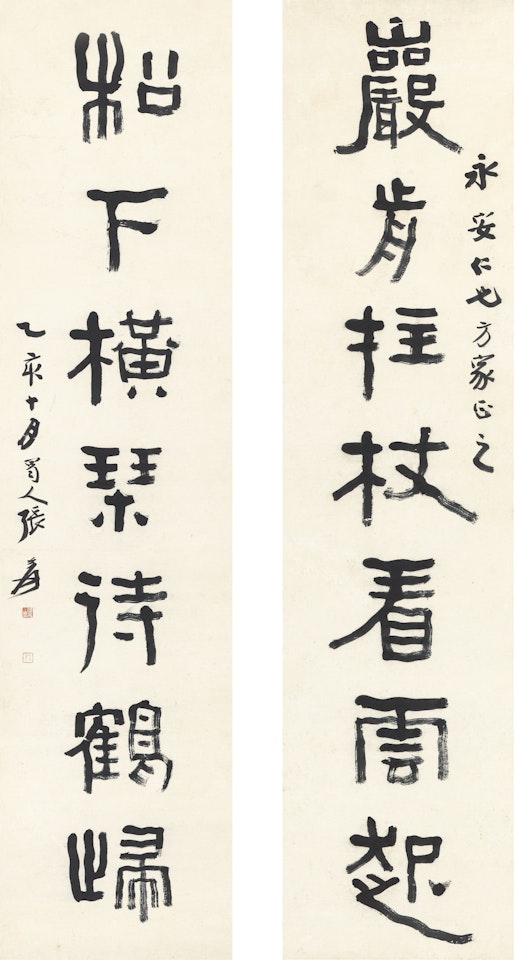 巖前拄杖看雲起
永安仁兄方家正之
松下橫琴待鶴歸
乙亥十月蜀人張爰